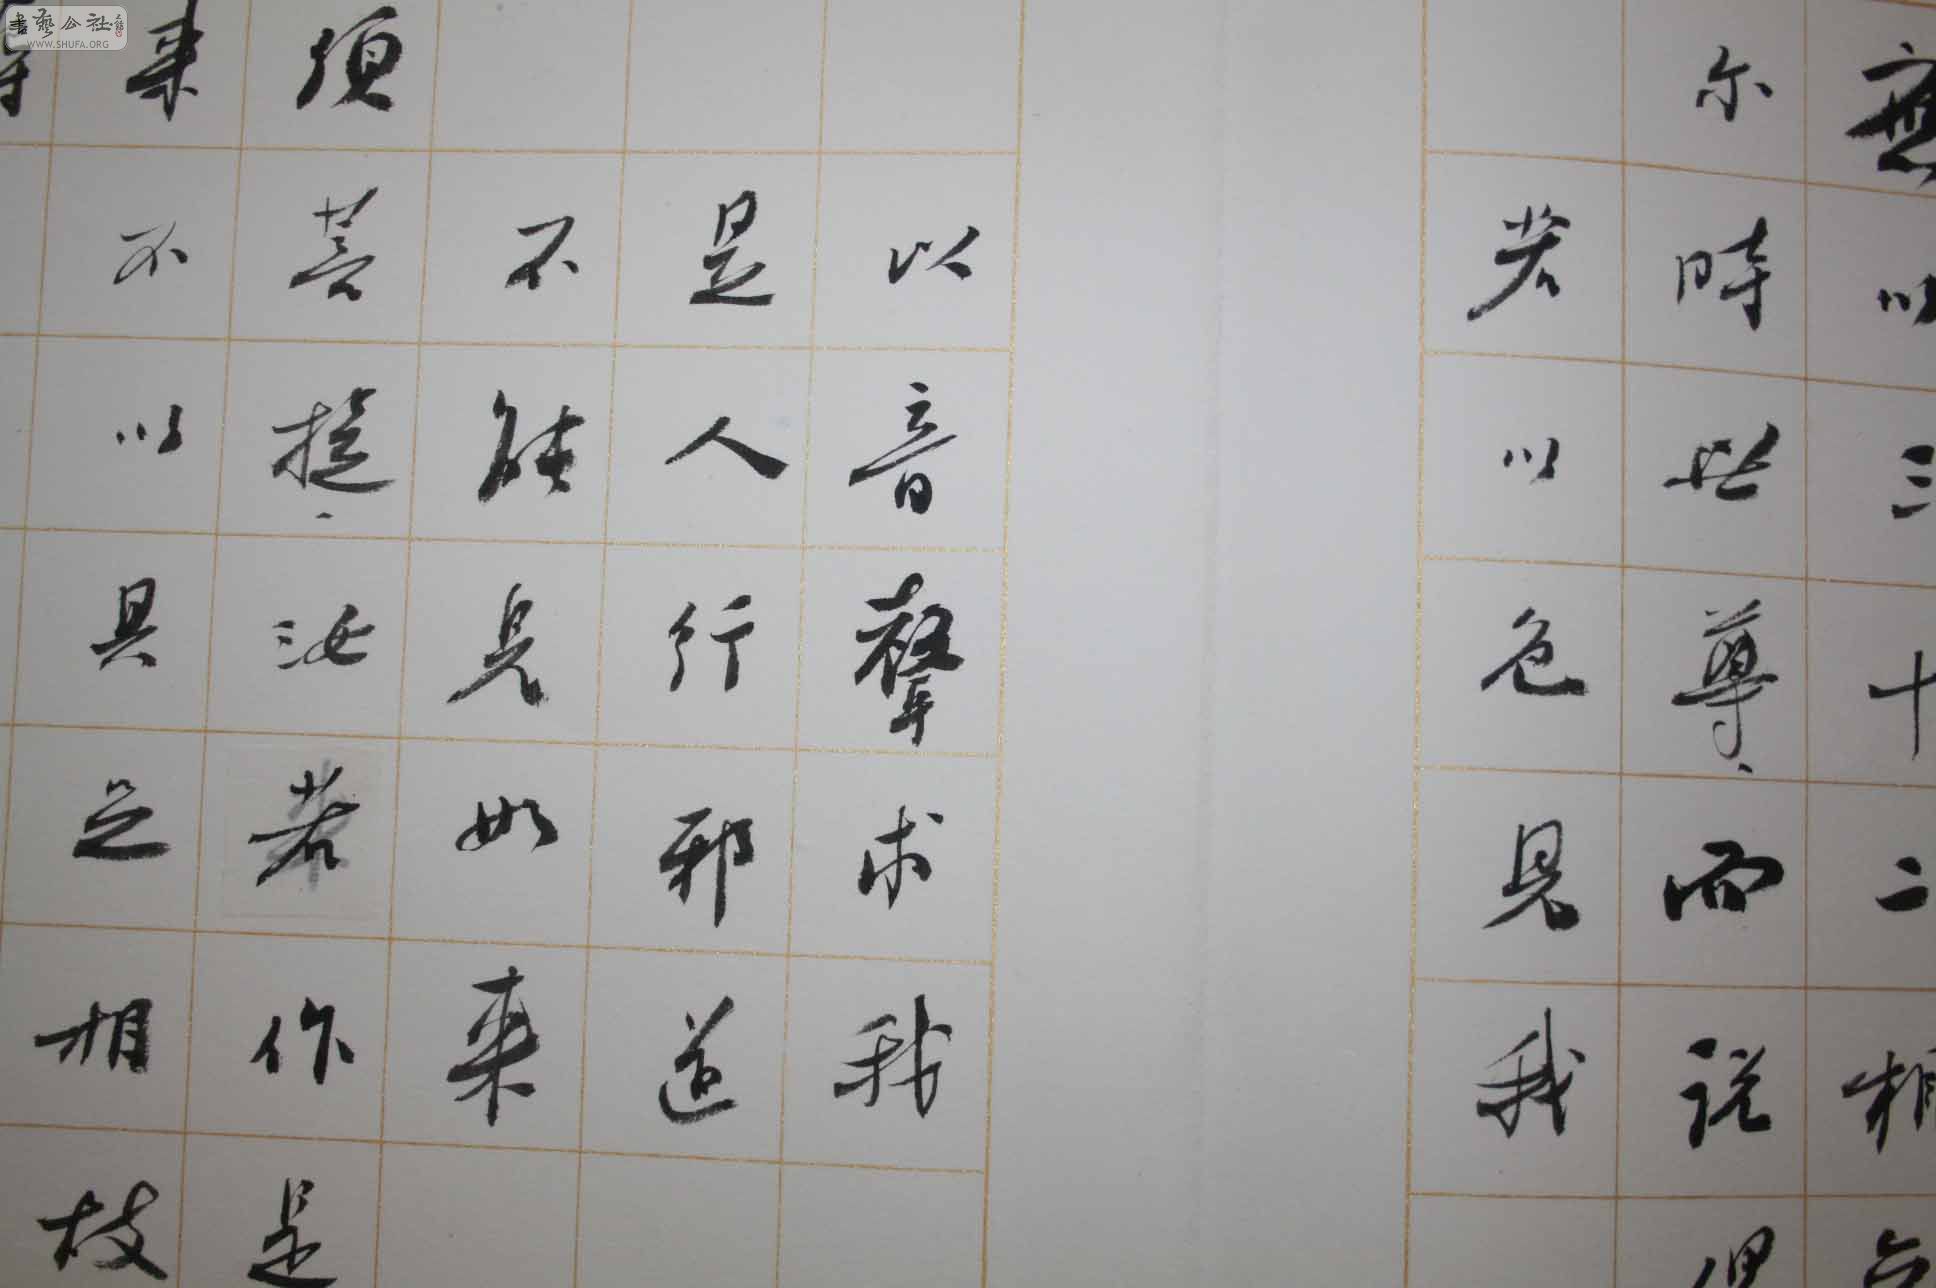 應以三十二相
尔時世尊而説偈
若以色見我
以音聲求我
是人行邪道
不能見如来
須菩提汝若作是
来不以具足相故
書藝公社
WWW.SHUFA.ORG